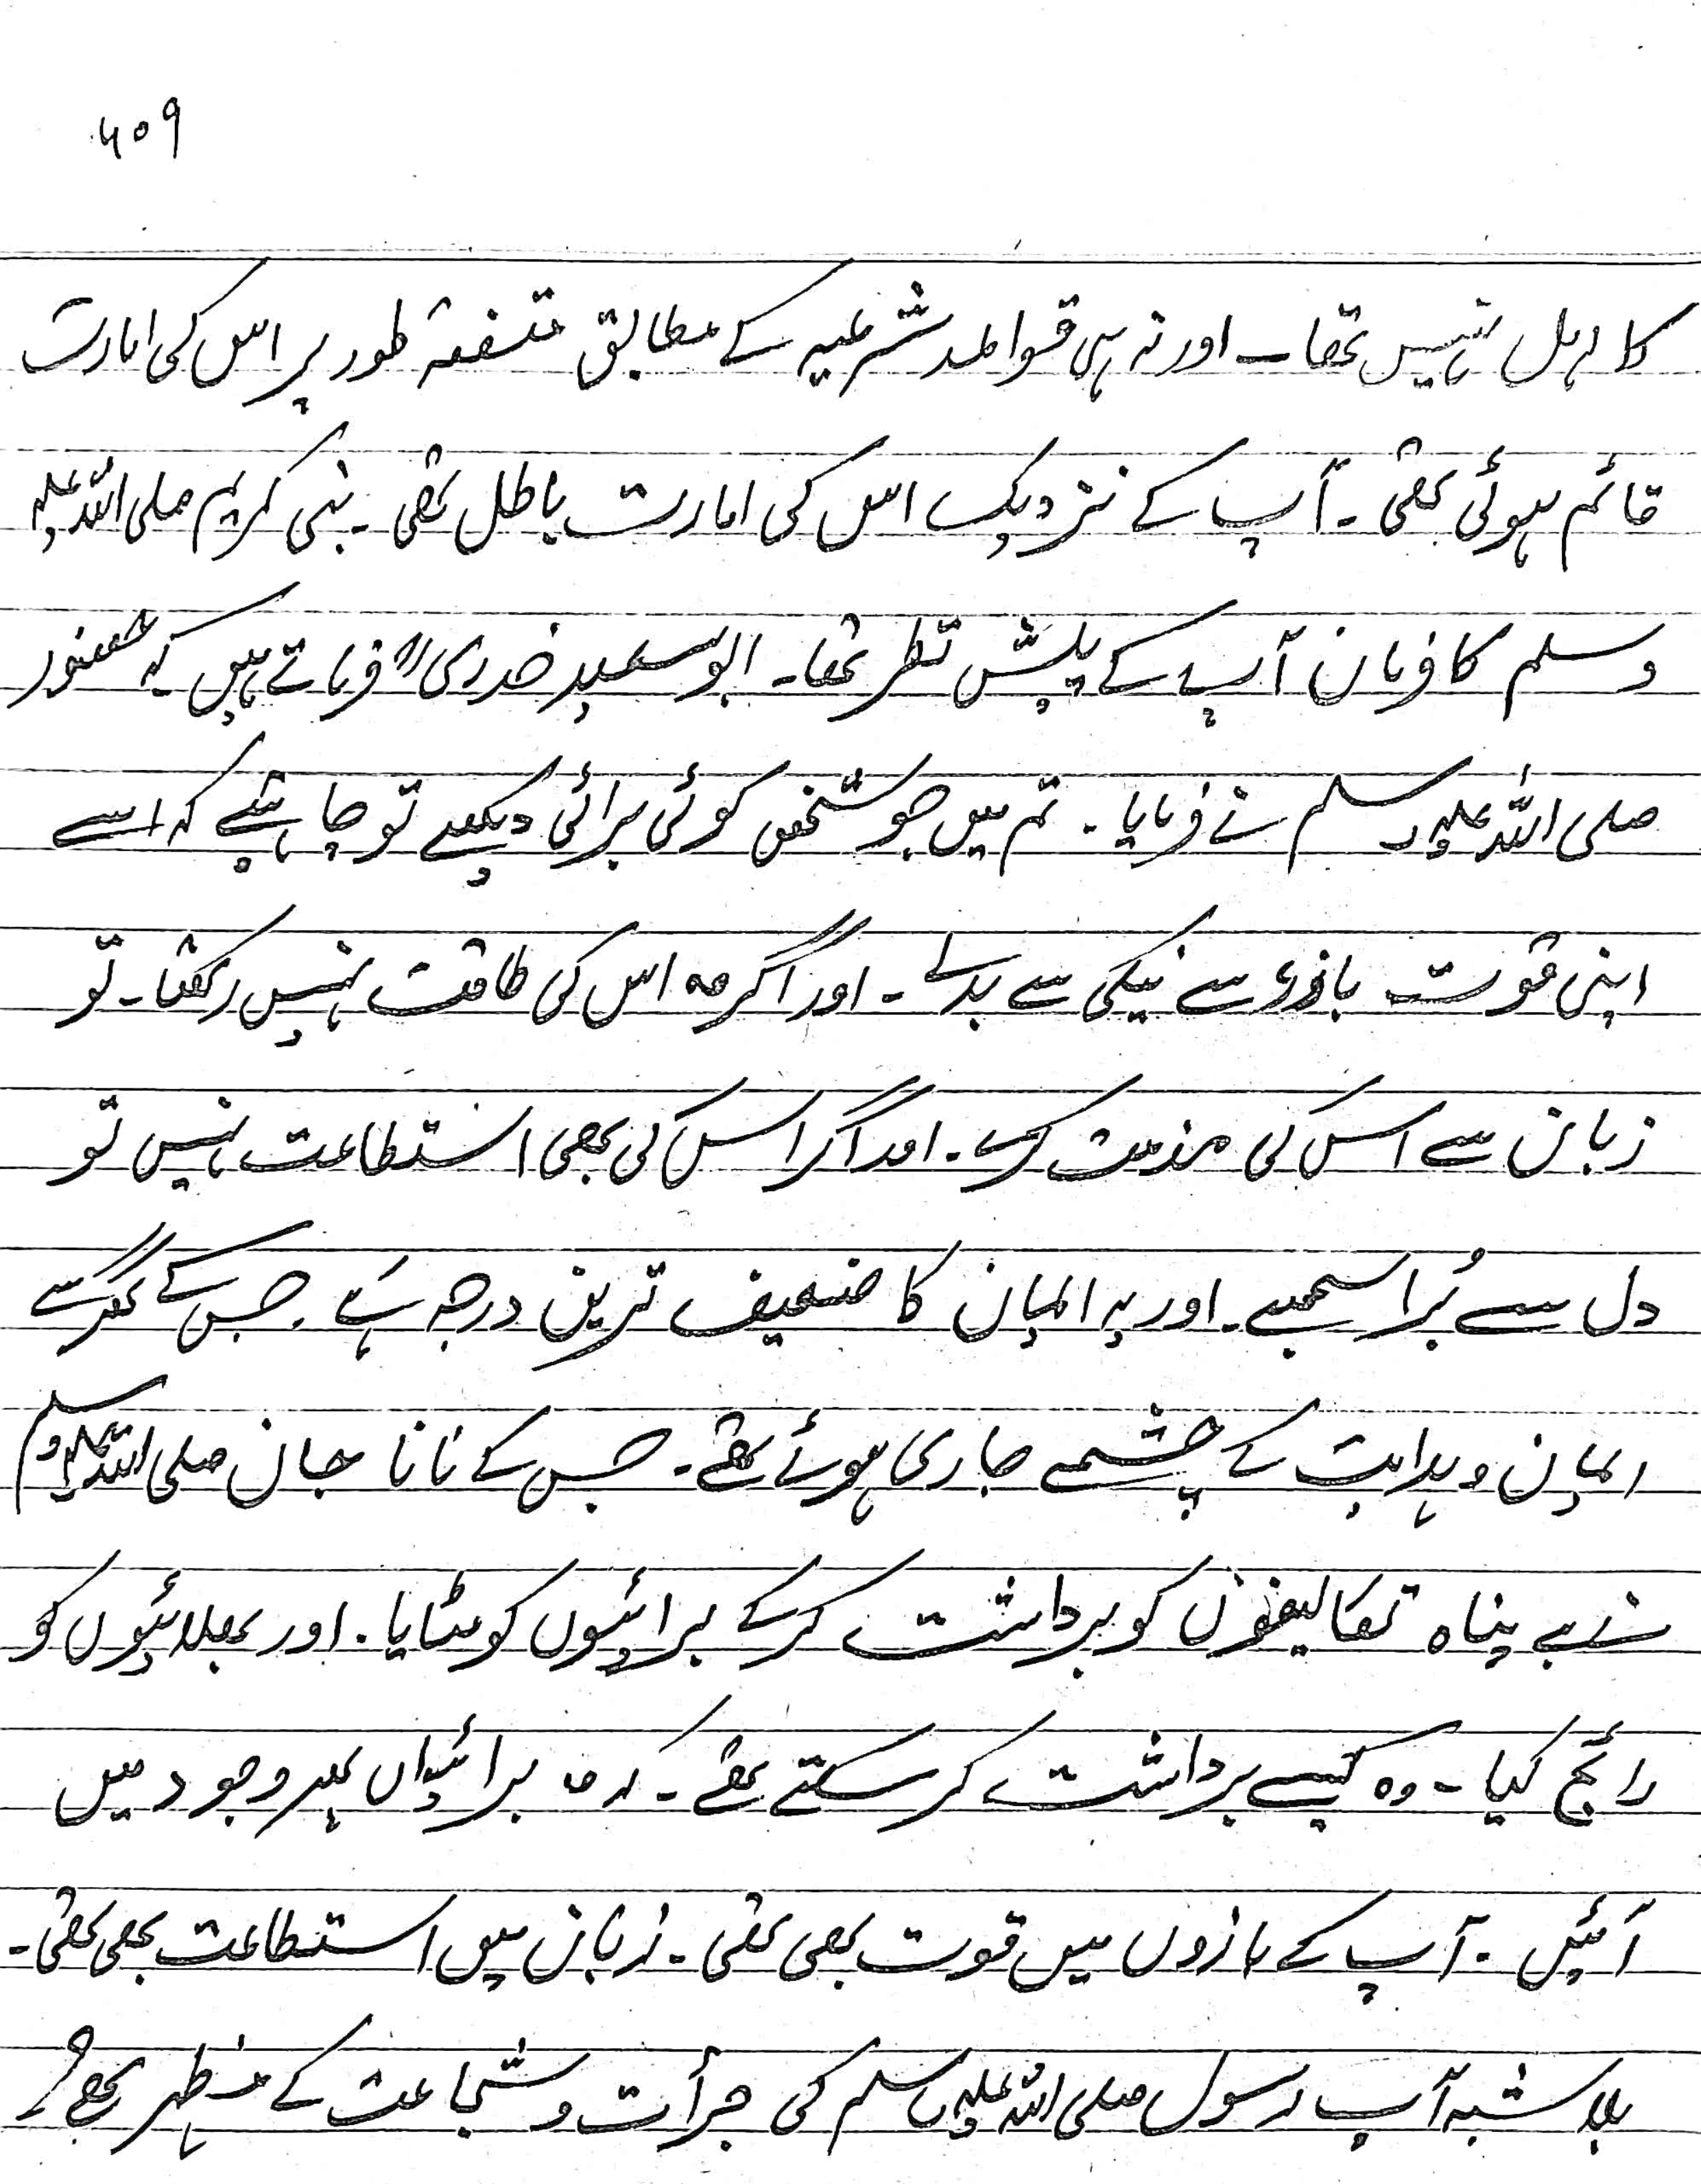 ۶۰۹
کا اہل نہیں تھا۔ اور نہ ہی قواعد شرعیہ کے مطابق متفقہ طور پر اس کی امارت
قائم ہوئی تھی۔ آپ کے نزدیک اس کی امارت باطل تھی۔ نبی کریم صلی اللہ علیہ
وسلم کا فرمان آپ کے پیش نظر تھا۔ ابو سعید خدری رض فرماتے ہیں کہ حضور
صلی اللہ علیہ وسلم نے فرمایا۔ تم میں جو شخص کوئی برائی دیکھے تو چاہئیے کہ اسے
اپنی قوت بازو سے نیکی سے بدلے۔ اور اگر وہ اس کی طاقت نہیں رکھتا۔ تو
زبان سے اس کی مذمت کرے۔ اور اگر اس کی بھی استطاعت نہیں تو
دل سے بُرا سمجھے۔ اور یہ ایمان کا ضعیف ترین درجہ ہے۔ جس کے گھر سے
ایمان و ہدایت کے چشمے جاری ہوئے تھے۔ جس کے نانا جان صلی اللہ علیہ وسلم
نے بے پناہ تکالیفوں کو برداشت کرکے برائیوں کو مٹایا۔ اور بھلائیوں کو
رائج کیا۔ وہ کیسے برداشت کر سکتے تھے۔ کہ وہ برائیاں پھر وجود میں
آئیں۔ آپ کے بازوں میں قوت بھی تھی۔ زبان میں استطاعت بھی تھی۔
بلاشبہ آپ رسول صلی اللہ علیہ وسلم کی جرأت و شجاعت کے مظہر تھے